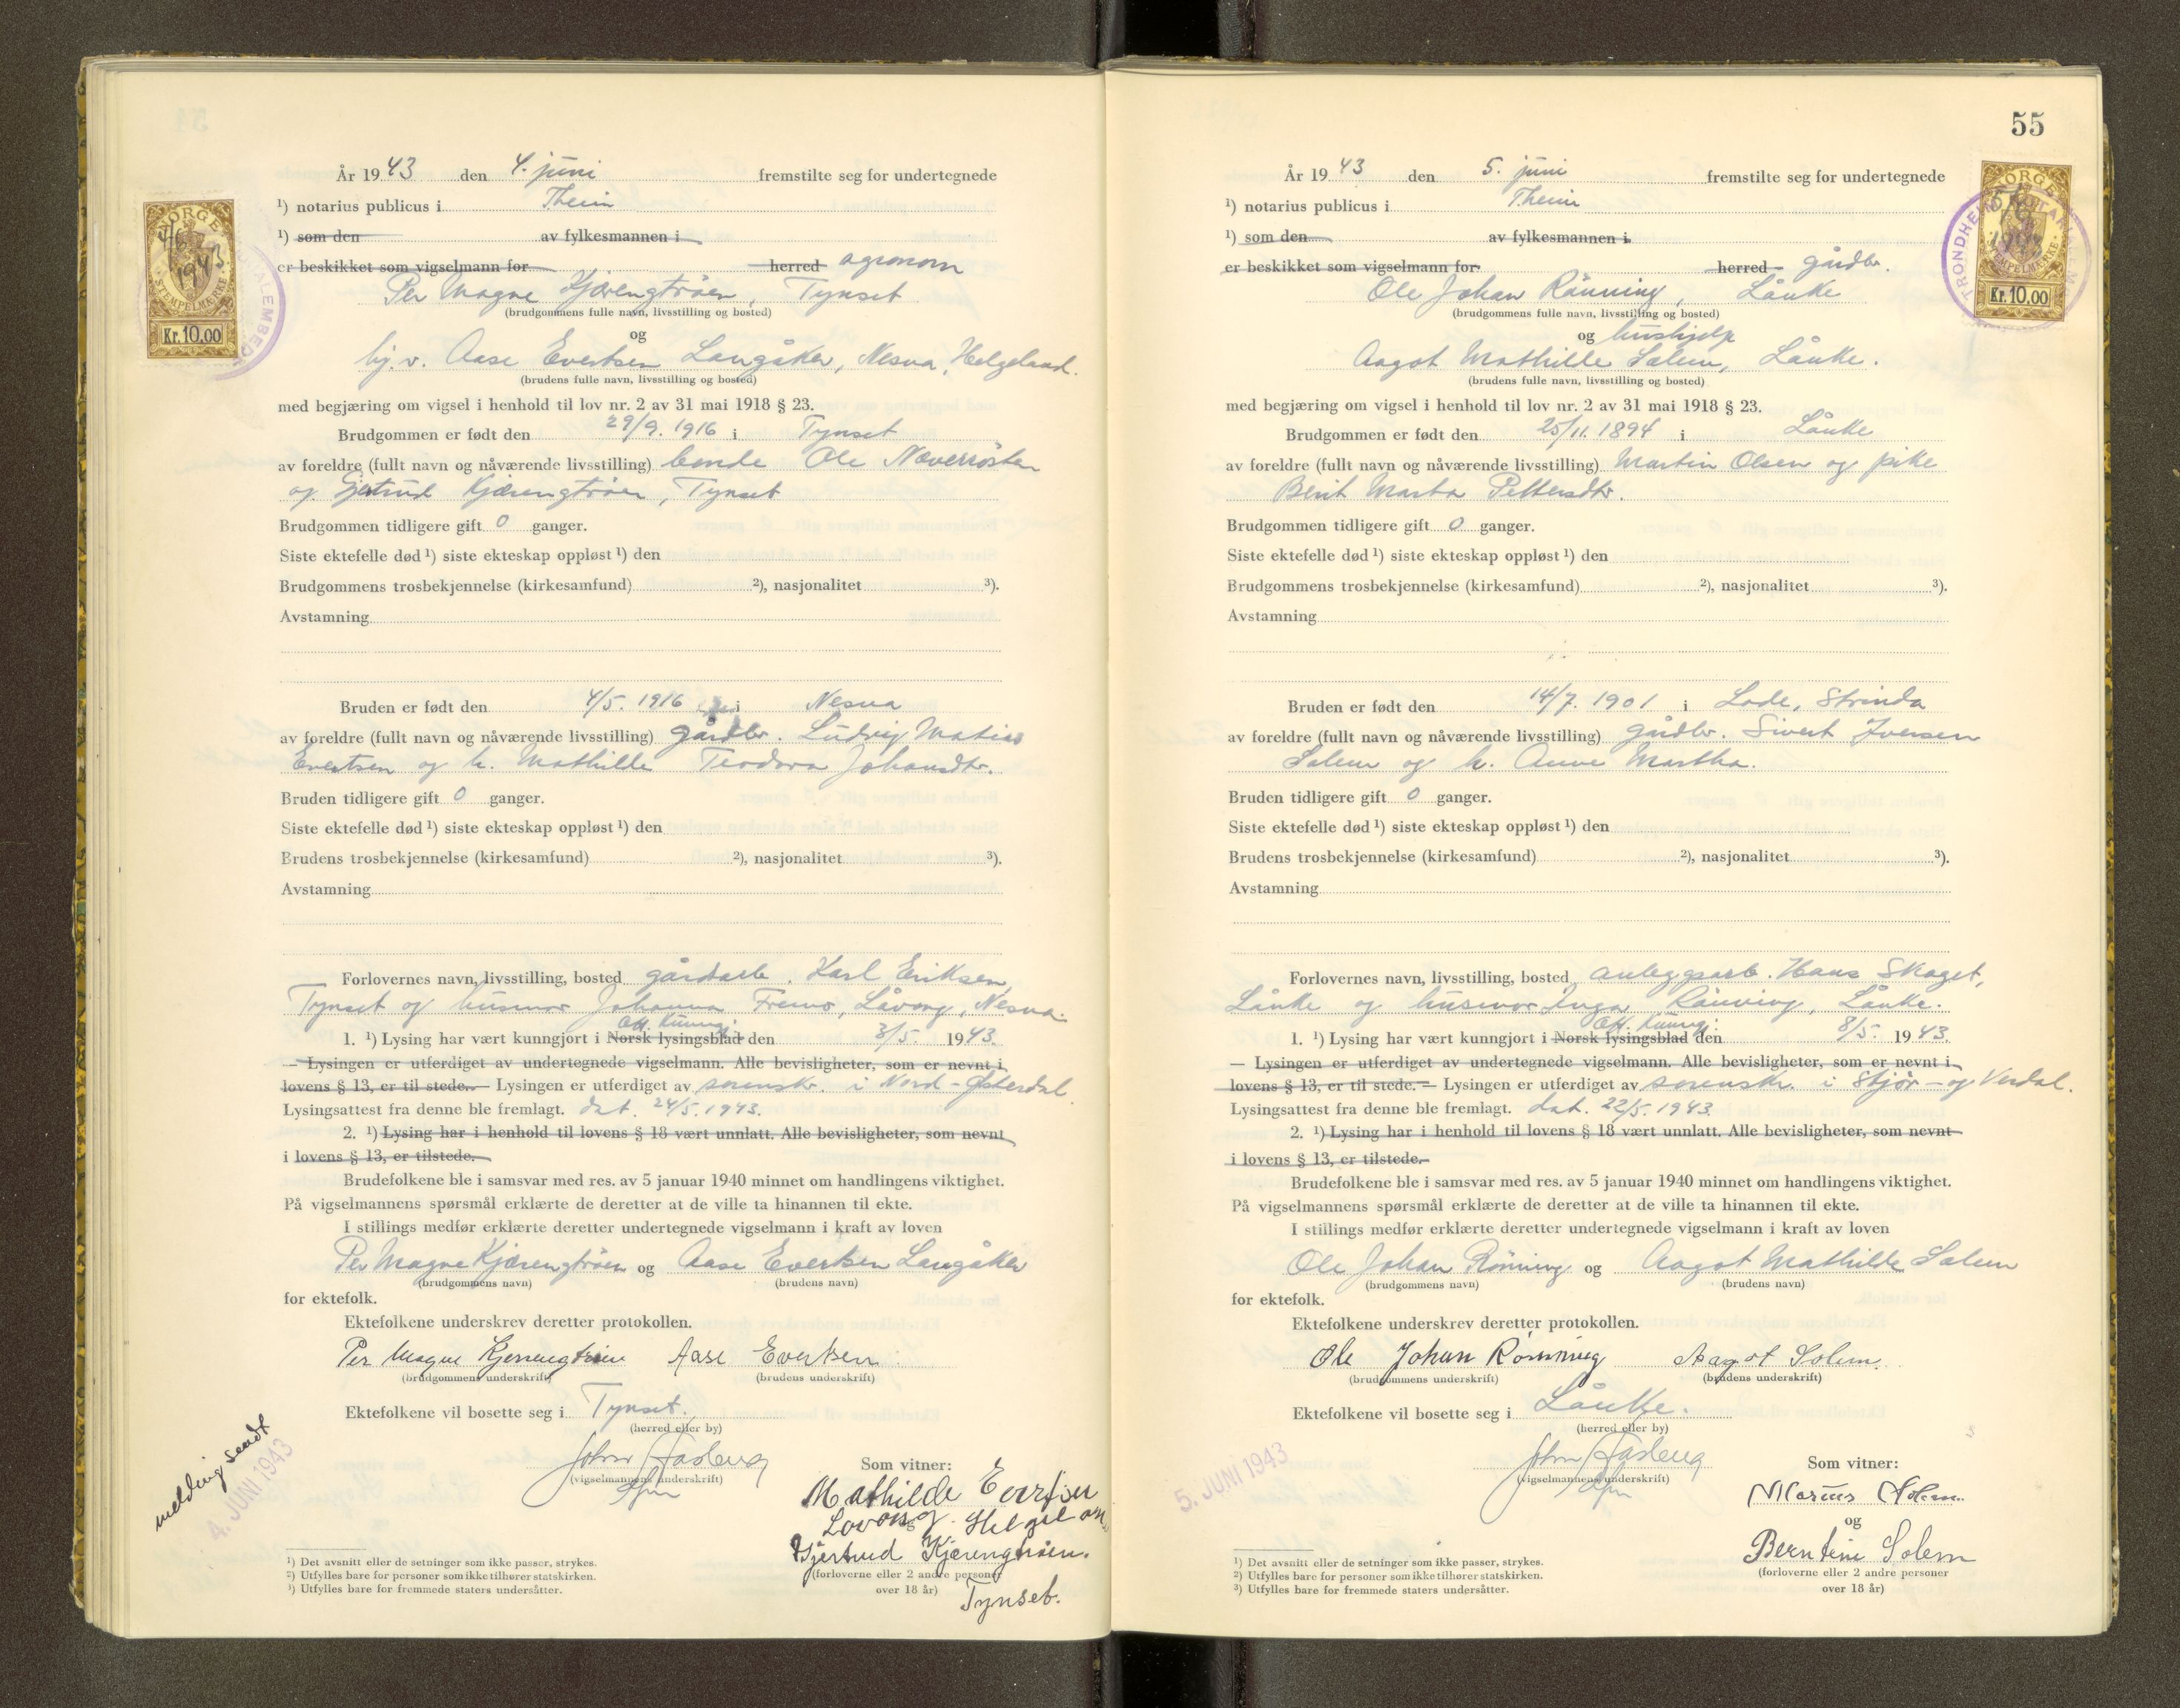 År 19 43 den 4. juni fremstilte seg for undertegnede
¹) notarius publicus i Theim
¹) som den av fylkesmannen i
er beskikket som vigselmann for herred agronom
Per Magne Kjærengtrøen, Tynset
(brudgommens fulle navn, livsstilling og bosted)
og
hj. v. Aase Evertsen Langåker, Nesna, Helgeland.
(brudens fulle navn, livsstilling og bosted)
med begjæring om vigsel i henhold til lov nr. 2 av 31 mai 1918 § 23.
Brudgommen er født den 29/9. 1916 i Tynset
av foreldre (fullt navn og nåværende livsstilling) bonde Ole Næverrösten
og Gjertrud Kjærengtrøen, Tynset
Brudgommen tidligere gift 0 ganger.
Siste ektefelle død ¹) siste ekteskap oppløst ¹) den
Brudgommens trosbekjennelse (kirkesamfund) ²), nasjonalitet ³).
Avstamning
Bruden er født den 4/5. 1916 i Nesna
av foreldre (fullt navn og nåværende livsstilling) gårdbr. Ludvig Matias
Evertsen og h. Mathilde Teodora Johansdtr.
Bruden tidligere gift 0 ganger.
Siste ektefelle død ¹) siste ekteskap oppløst ¹) den
Brudens trosbekjennelse (kirkesamfund) ²), nasjonalitet ³).
Avstamning
Forlovernes navn, livsstilling, bosted gårdarb. Karl Eriksen,
Tynset og husmor Johanna Fremo, Låvong, Nesna.
Off. kunngj.
1. ¹) Lysing har vært kunngjort i Norsk lysingsblad den 3/5. 19 43.
— Lysingen er utferdiget av undertegnede vigselmann. Alle bevisligheter, som er nevnt i
lovens § 13, er til stede. — Lysingen er utferdiget av sorenskr. i Nord-Østerdal.
Lysingsattest fra denne ble fremlagt. dat. 24/5. 1943.
2. ¹) Lysing har i henhold til lovens § 18 vært unnlatt. Alle bevisligheter, som nevnt
i lovens § 13, er tilstede.
Brudefolkene ble i samsvar med res. av 5 januar 1940 minnet om handlingens viktighet.
På vigselmannens spørsmål erklærte de deretter at de ville ta hinannen til ekte.
I stillings medfør erklærte deretter undertegnede vigselmann i kraft av loven
Per Magne Kjærengtrøen og Aase Evertsen Langåker
(brudgommens navn) (brudens navn)
for ektefolk.
Ektefolkene underskrev deretter protokollen.
Per Magne Kjerengtrøen Aase Evertsen
(brudgommens underskrift) (brudens underskrift)
Ektefolkene vil bosette seg i Tynset.
(herred eller by)
(vigselmannens underskrift)
Som vitner:
Mathilde Evertsen
Lovong. Helgelan
Gjertrud Kjærengtrøen.
(forloverne eller 2 andre personer
over 18 år)
Tynset.
melding sendt
4. JUNI 1943
¹) Det avsnitt eller de setninger som ikke passer, strykes.
²) Utfylles bare for personer som ikke tilhører statskirken.
³) Utfylles bare for fremmede staters undersåtter.
NORGE
4/6
1943
STEMPELMERKE
Kr. 10.00
55
År 19 43 den 5. juni fremstilte seg for undertegnede
¹) notarius publicus i Theim
¹) som den av fylkesmannen i
er beskikket som vigselmann for herred gårdbr.
Ole Johan Rönning, Lånke
(brudgommens fulle navn, livsstilling og bosted)
og hushjelp
Aagot Mathilde Solem, Lånke.
(brudens fulle navn, livsstilling og bosted)
med begjæring om vigsel i henhold til lov nr. 2 av 31 mai 1918 § 23.
Brudgommen er født den 25/11. 1894 i Lånke
av foreldre (fullt navn og nåværende livsstilling) Martin Olsen og pike
Berit Marta Pettersdtr.
Brudgommen tidligere gift 0 ganger.
Siste ektefelle død ¹) siste ekteskap oppløst ¹) den
Brudgommens trosbekjennelse (kirkesamfund) ²), nasjonalitet ³).
Avstamning
Bruden er født den 14/7. 1901 i Lade, Strinda
av foreldre (fullt navn og nåværende livsstilling) gårdbr. Sivert Iversen
Solem og h. Anne Martha.
Bruden tidligere gift 0 ganger.
Siste ektefelle død ¹) siste ekteskap oppløst ¹) den
Brudens trosbekjennelse (kirkesamfund) ²), nasjonalitet ³).
Avstamning
Forlovernes navn, livsstilling, bosted anleggsarb. Hans Skaget,
Lånke og husmor Inga Rönning, Lånke.
Off. kunngj.
1. ¹) Lysing har vært kunngjort i Norsk lysingsblad den 8/5. 19 43.
— Lysingen er utferdiget av undertegnede vigselmann. Alle bevisligheter, som er nevnt i
lovens § 13, er til stede. — Lysingen er utferdiget av sorenskr. i Stjør- og Verdal.
Lysingsattest fra denne ble fremlagt. dat. 22/5. 1943
2. ¹) Lysing har i henhold til lovens § 18 vært unnlatt. Alle bevisligheter, som nevnt
i lovens § 13, er tilstede.
Brudefolkene ble i samsvar med res. av 5 januar 1940 minnet om handlingens viktighet.
På vigselmannens spørsmål erklærte de deretter at de ville ta hinannen til ekte.
I stillings medfør erklærte deretter undertegnede vigselmann i kraft av loven
Ole Johan Rönning og Aagot Mathilde Solem
(brudgommens navn) (brudens navn)
for ektefolk.
Ektefolkene underskrev deretter protokollen.
Ole Johan Rønning Aagot Solem.
(brudgommens underskrift) (brudens underskrift)
Ektefolkene vil bosette seg i Lånke.
(herred eller by)
(vigselmannens underskrift)
Som vitner:
Marius Solem.
og
Berntine Solem
(forloverne eller 2 andre personer
over 18 år)
5. JUNI 1943
¹) Det avsnitt eller de setninger som ikke passer, strykes.
²) Utfylles bare for personer som ikke tilhører statskirken.
³) Utfylles bare for fremmede staters undersåtter.
NORGE
STEMPELMERKE
Kr. 10.00